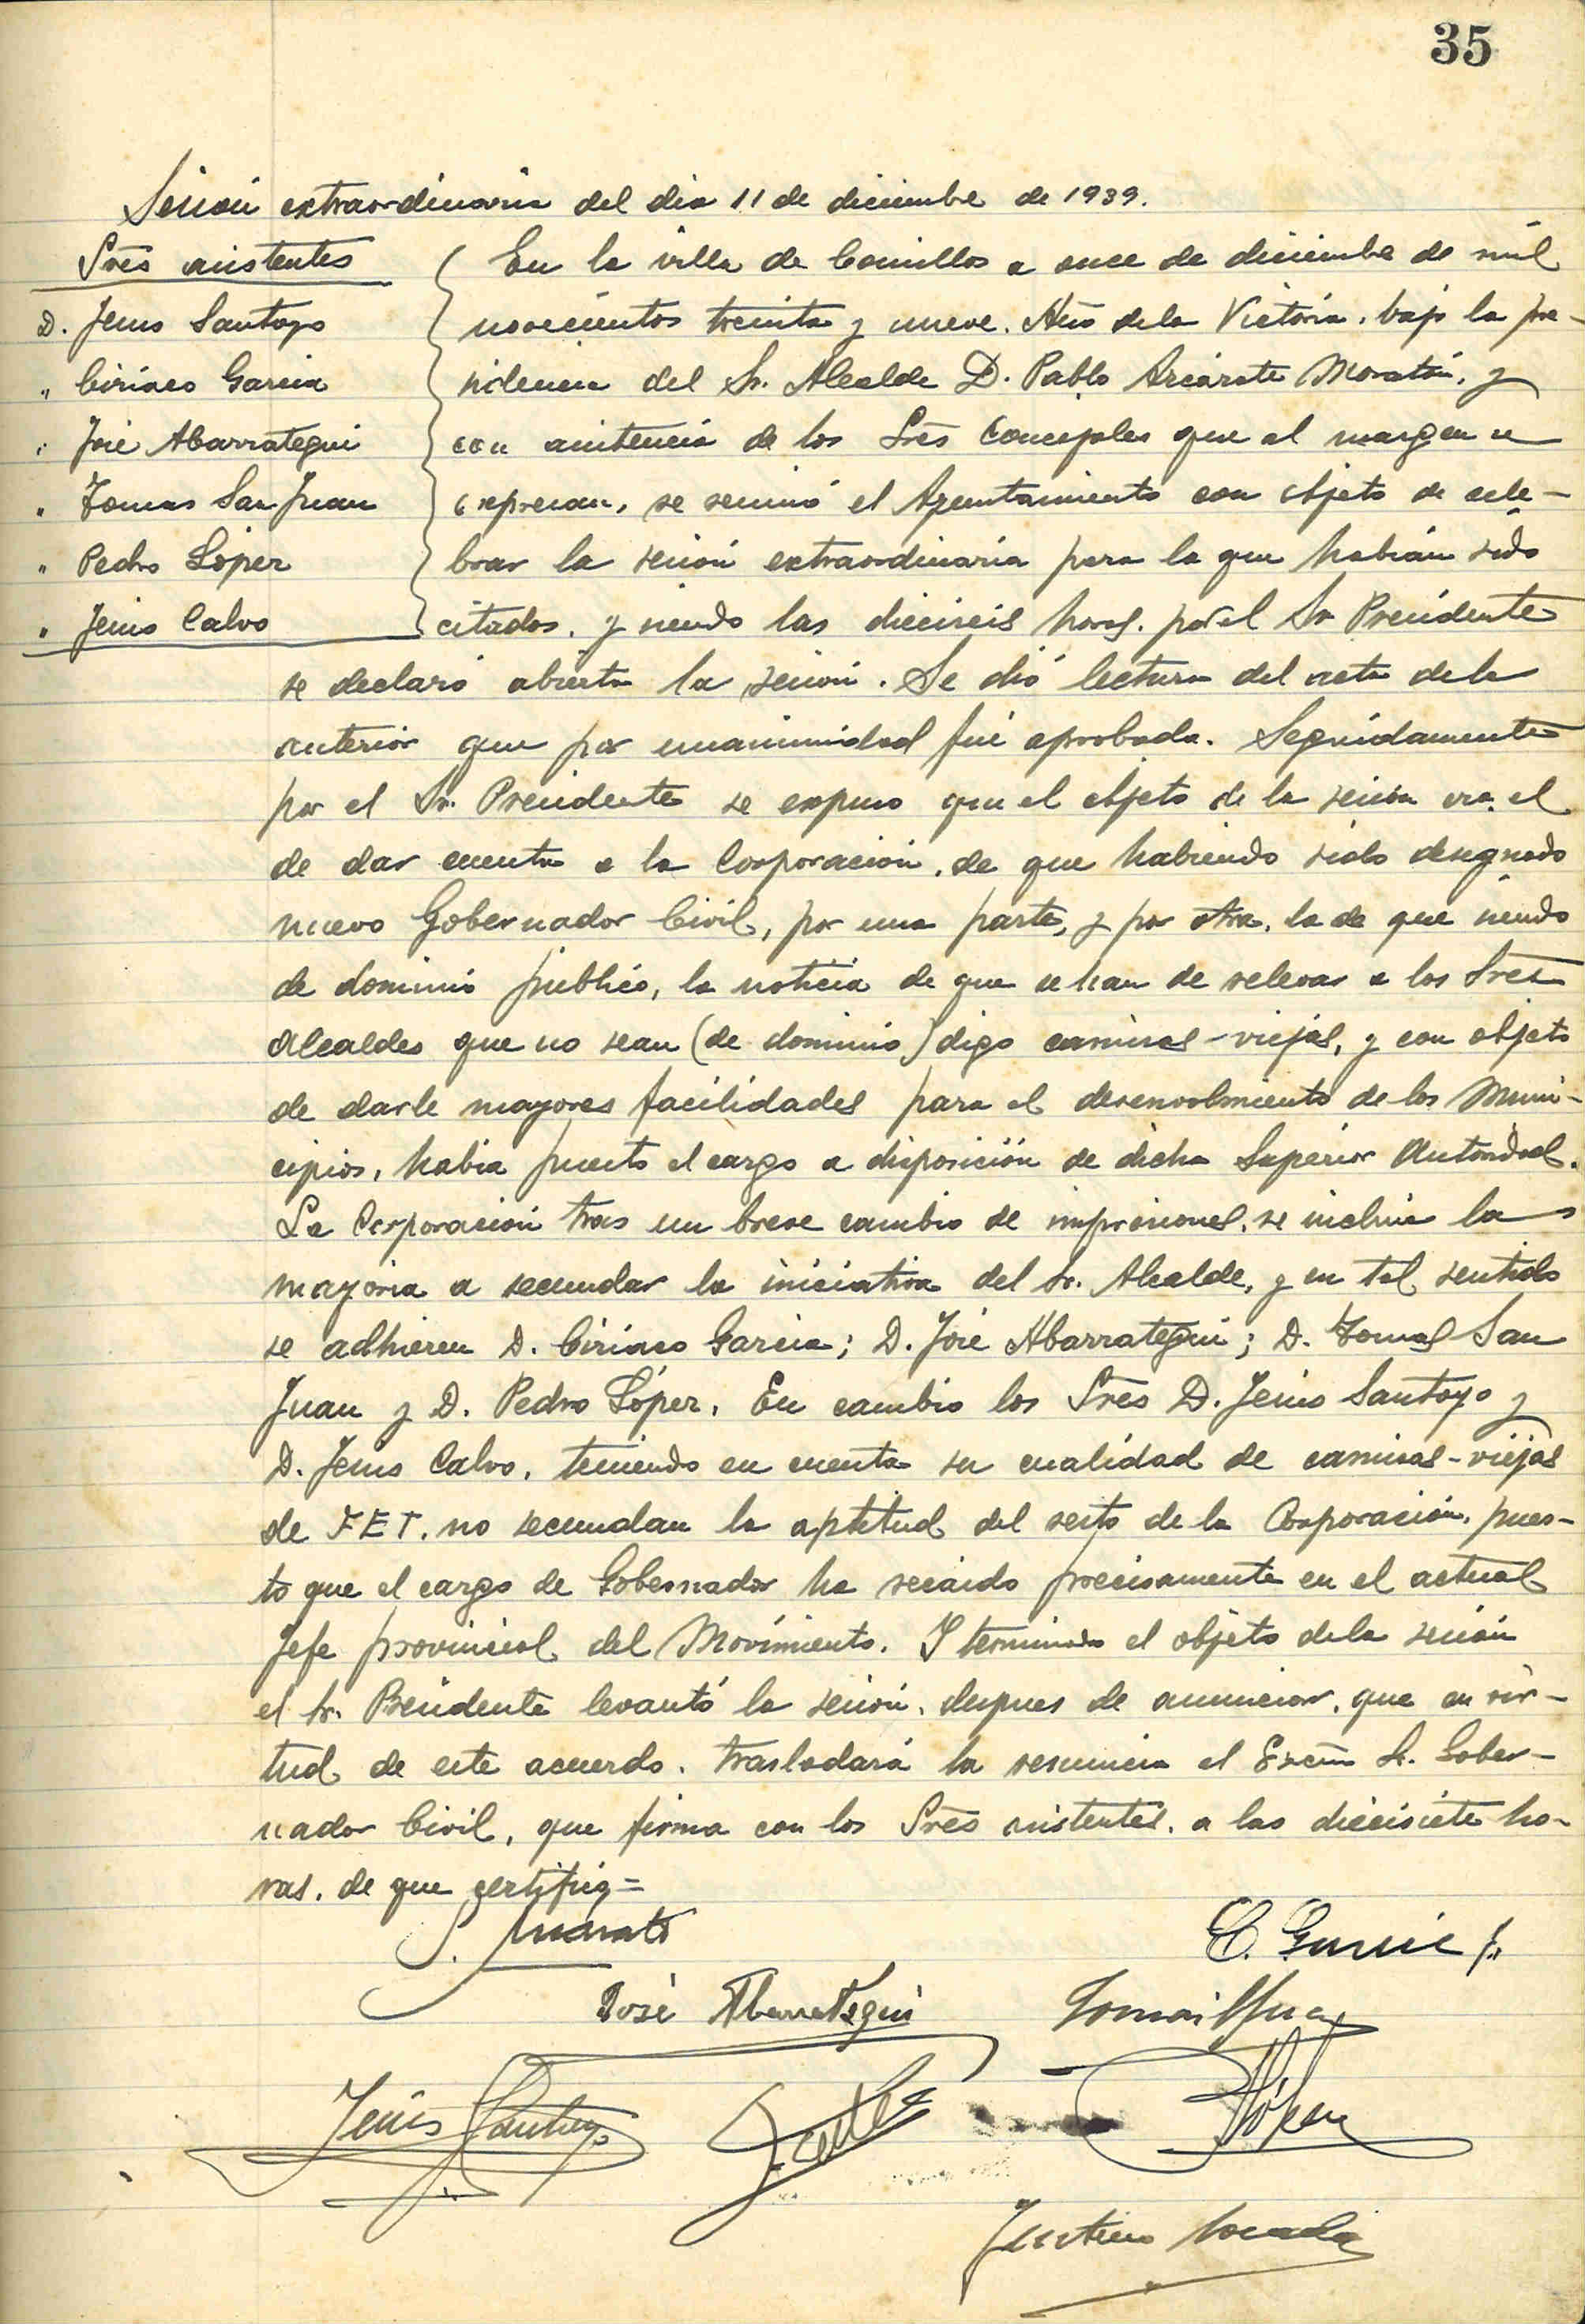 35
Sesión extraordinaria del dia 11 de diciembre de 1939.
Sres asistentes
D. Jesus Santoyo
" Ciriaco Garcia
" José Abarrategui
" Tomas San Juan
" Pedro López
" Jesús Calvo
En la villa de Comillos a once de diciembre de mil
novecientos treinta y nueve. Año dela Victoria. bajo la pre-
sidencia del Sr. Alcalde D. Pablo Arcárate Moratón, y
con asistencia de los Sres Concejales que al margen se
expresan, se reunió el Ayuntamiento con objeto de cele-
brar la sesión extraordinaria para la que habian sido
citados, y siendo las dieciseis horas. por el Sr Presidente
se declaró abierta la sesión. Se dió lectura del acta dela
anterior que por unanimidad fué aprobada. Seguidamente
por el Sr. Presidente se expuso que el objeto de la sesión era el
de dar cuenta a la Corporación, de que habiendo sido designado
nuevo Gobernador Civil, por una parte, y por otra, la de que siendo
de dominio publico, la noticia de que se han de relevar a los Sres
Alcaldes que no sean (de dominio) digo camisas-viejas, y con objeto
de darle mayores facilidades para el desenvolvmiento de los Muni-
cipios, habia puesto el cargo a disposición de dicha Superior Autoridad.
La Corporación tras un breve cambio de impresiones, se inclina la
mayoria a secundar la iniciativa del Sr. Alcalde, y en tal sentido
se adhieren D. Ciriaco Garcia; D. José Abarrategui; D. Tomas San
Juan y D. Pedro López. En cambio los Sres D. Jesús Santoyo y
D. Jesus Calvo, teniendo en cuenta su cualidad de camisas-viejas
de FET. no secundan la aptitud del resto de la Corporación, pues-
to que el cargo de Gobernador ha recaido precisamente en el actual
Jefe provincial del Movimiento. Y terminado el objeto dela sesión
el Sr. Presidente levantó la sesión, despues de anunciar, que en vir-
tud de este acuerdo. trasladará la renuncia al Excmo Sr. Gober-
nador Civil, que firma con los Sres asistentes. a las diecisiete ho-
ras. de que certifico=
C. Garcia
José Abarrategui
Jesús Santoyo
López